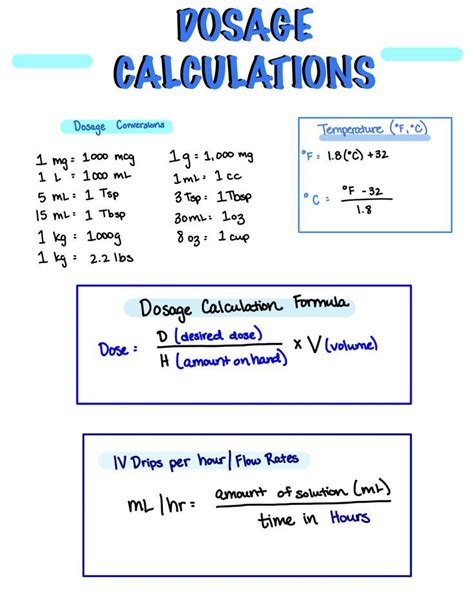 DOSAGE
CALCULATIONS
Dosage Conversions
1 mg = 1000 mcg
1 L = 1000 mL
5 mL = 1 Tsp
15 mL = 1 Tbsp
1 kg = 1000g
1 kg = 2.2 lbs
1g = 1,000 mg
1mL = 1 cc
3 Tsp = 1 Tbsp
30mL = 1oz
8 oz = 1 cup
Temperature (°F, °C)
°F = 1.8(°C) + 32
°C = °F - 32
1.8
Dosage Calculation Formula
Dose = D (desired dose) x V (volume)
H (amount on hand)
IV Drips per hour / Flow Rates
mL/hr = amount of solution (mL)
time in Hours